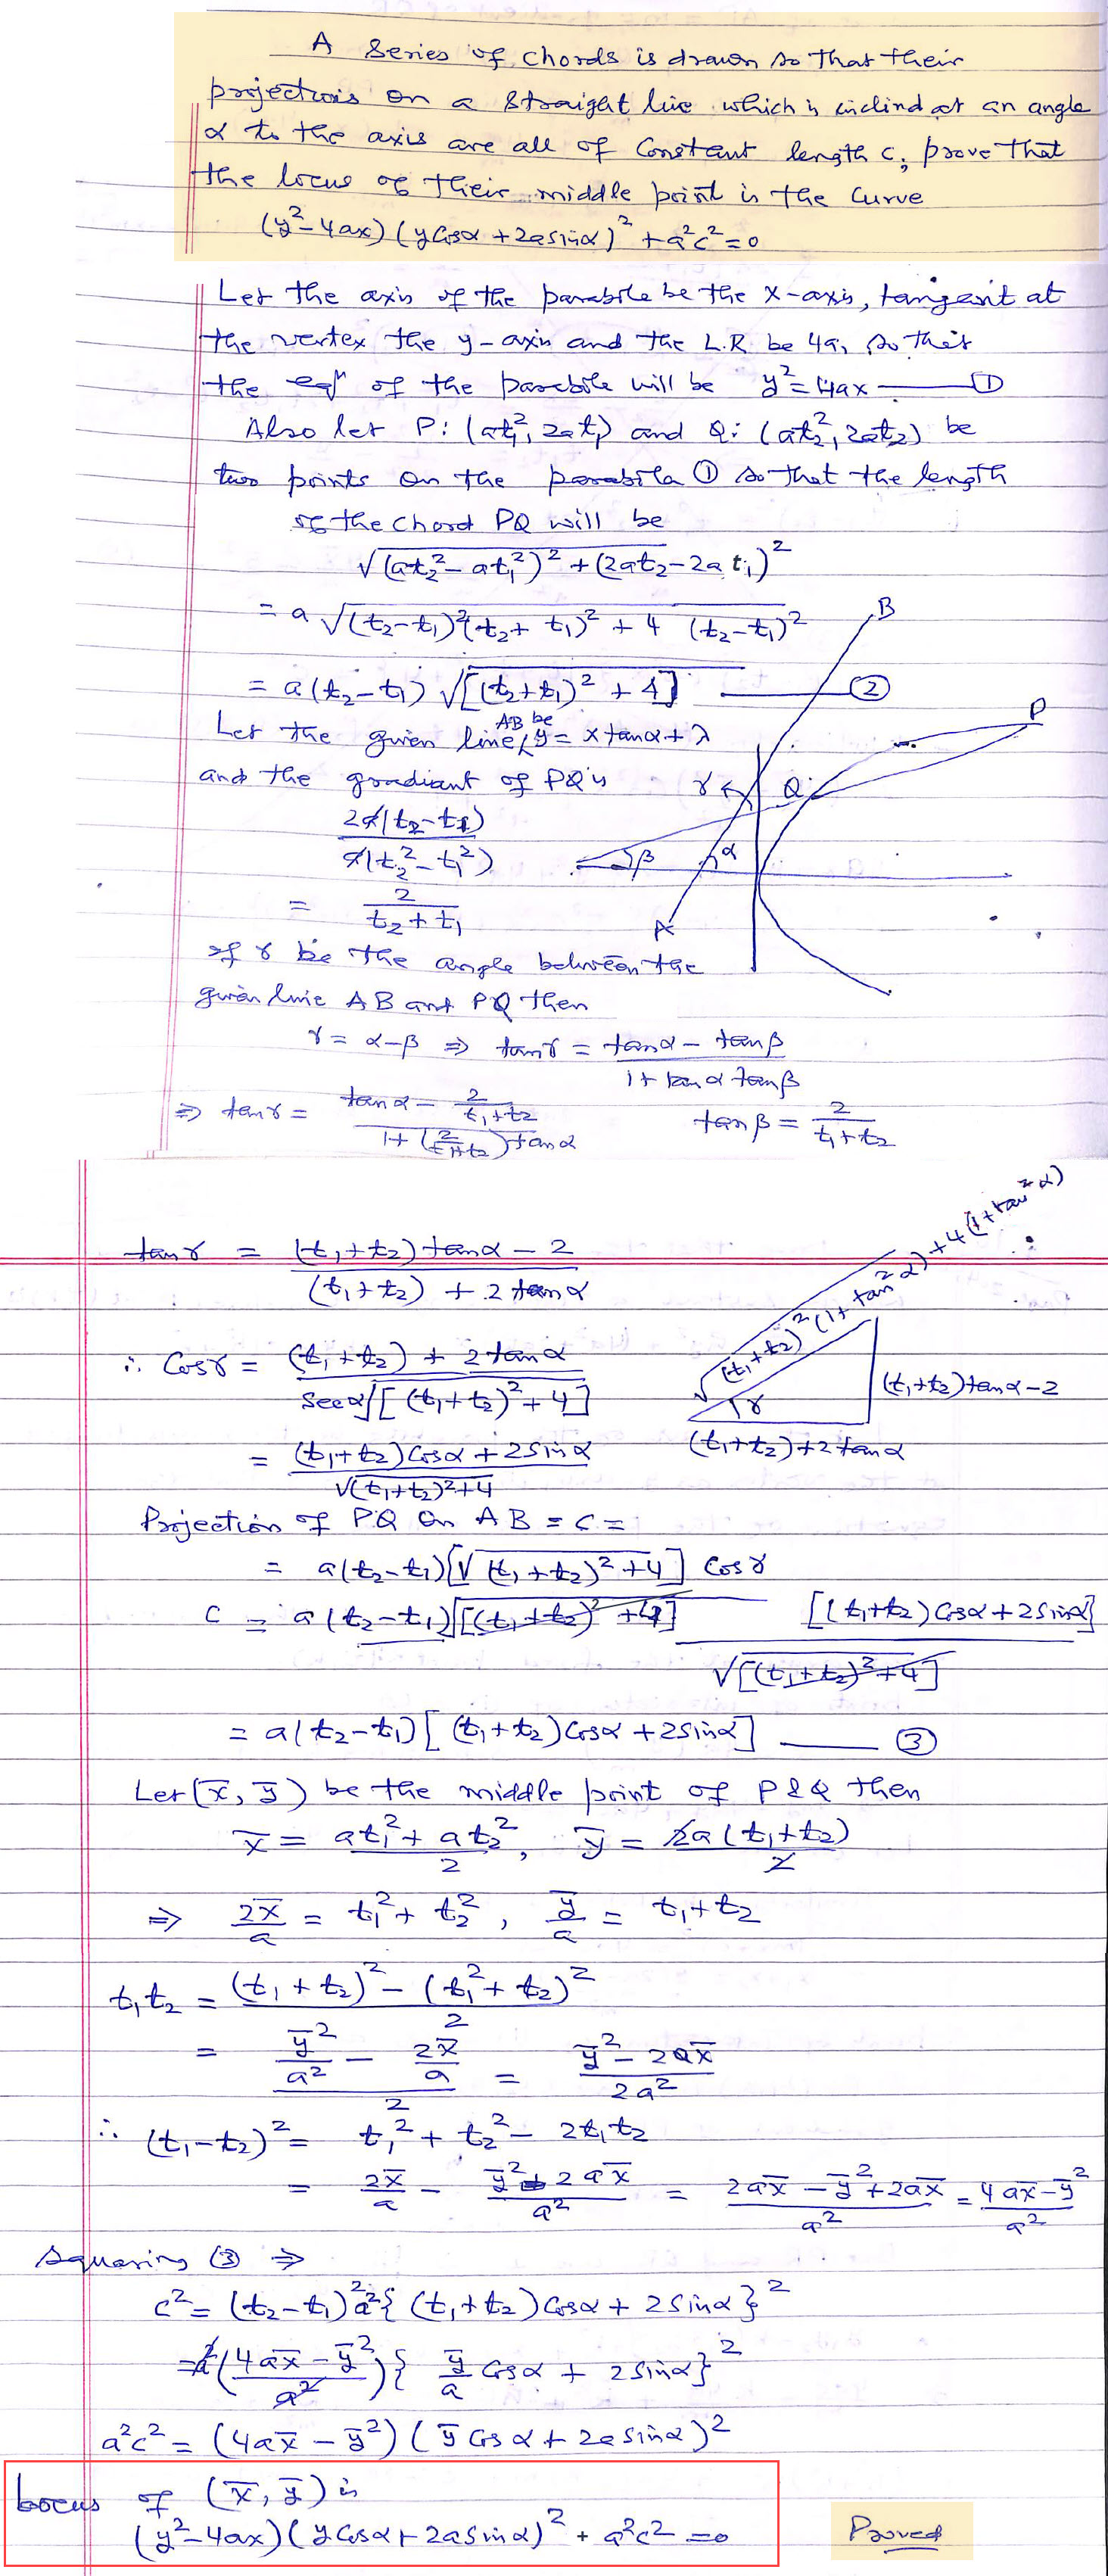 A series of chords is drawn so that their
projections on a straight line which is inclind at an angle
α to the axis are all of constant length c; prove that
the locus of their middle point is the curve
(y²-4ax)(y cosα + 2a sinα)² + a²c² = 0
Let the axis of the parabola be the x-axis, tangent at
the vertex the y-axis and the L.R be 4a, so that
the eqⁿ of the parabola will be y² = 4ax — ①
Also let P: (at₁², 2at₁) and Q: (at₂², 2at₂) be
two points on the parabola ① so that the length
of the chord PQ will be
√(at₂² - at₁²)² + (2at₂ - 2at₁)²
= a √(t₂-t₁)²(t₂+t₁)² + 4 (t₂-t₁)²
= a(t₂-t₁) √[(t₂+t₁)² + 4] — ②
Let the given line AB be y = x tanα + λ
and the gradiant of PQ is
2a(t₂-t₁)
a(t₂²-t₁²)
= 2/(t₂+t₁)
B
P
Q
γ
β
α
A
If γ be the angle between the
given line AB and PQ then
γ = α-β ⇒ tanγ = (tanα - tanβ)/(1 + tanα tanβ)
⇒ tanγ = (tanα - 2/(t₁+t₂))/(1 + (2/(t₁+t₂)) tanα) tanβ = 2/(t₁+t₂)
tanγ = ((t₁+t₂) tanα - 2)/((t₁+t₂) + 2 tanα)
√(t₁+t₂)²(1+tan²α) + 4(1+tan²α)
(t₁+t₂) tanα - 2
γ
(t₁+t₂) + 2 tanα
∴ Cosγ = ((t₁+t₂) + 2 tanα)/(secα √[(t₁+t₂)² + 4])
= ((t₁+t₂) cosα + 2 sinα)/√(t₁+t₂)²+4
Projection of PQ on AB = c =
= a(t₂-t₁)[√(t₁+t₂)² + 4] cosγ
c = a(t₂-t₁)√[(t₁+t₂)² + 4] [(t₁+t₂) cosα + 2 sinα]/√[(t₁+t₂)² + 4]
= a(t₂-t₁)[(t₁+t₂) cosα + 2 sinα] — ③
Let (x̄, ȳ) be the middle point of P & Q then
x̄ = (at₁² + at₂²)/2, ȳ = 2a(t₁+t₂)/2
⇒ 2x̄/a = t₁² + t₂², ȳ/a = t₁+t₂
t₁t₂ = ((t₁+t₂)² - (t₁²+t₂)²)/2
= (ȳ²/a² - 2x̄/a)/2 = (ȳ² - 2ax̄)/2a²
∴ (t₁-t₂)² = t₁² + t₂² - 2t₁t₂
= 2x̄/a - (ȳ² - 2ax̄)/a² = (2ax̄ - ȳ² + 2ax̄)/a² = (4ax̄ - ȳ²)/a²
Squaring ③ ⇒
c² = (t₂-t₁)²a²{(t₁+t₂) cosα + 2 sinα}²
= a²((4ax̄ - ȳ²)/a²){ȳ/a cosα + 2 sinα}²
a²c² = (4ax̄ - ȳ²)(ȳ cosα + 2a sinα)²
Locus of (x̄, ȳ) is
(y²-4ax)(y cosα + 2a sinα)² + a²c² = 0
Proved